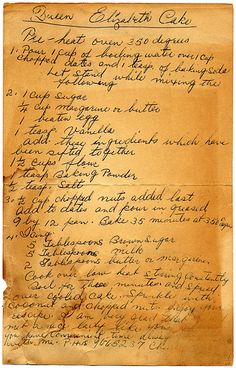 Queen Elizabeth Cake
Pre-heat oven 350 degrees
1. Pour 1 cup of boiling water over 1 cup
chopped dates and 1 teasp. of baking soda
Let stand while mixing the
following
2. 1 cup sugar
¼ cup margarine or butter
1 beaten egg
1 teasp. vanilla
Add these ingredients which have
been sifted together
1½ cups flour
1 teasp Baking Powder
½ teasp. Salt
3. ½ cup chopped nuts added last
Add to dates and pour in greased
9 by 12 pan. Bake 35 minutes at 350 degrees
4. Icing
5 Tablespoons Brown Sugar
5 Tablespoons milk
2 Tablespoons butter or margarine
Cook over low heat stirring constantly
Boil for three minutes and spread
over cooled cake. Sprinkle with
coconut and chopped nuts. Enjoy your
I am very great
not a nice lady like you
you have time
write